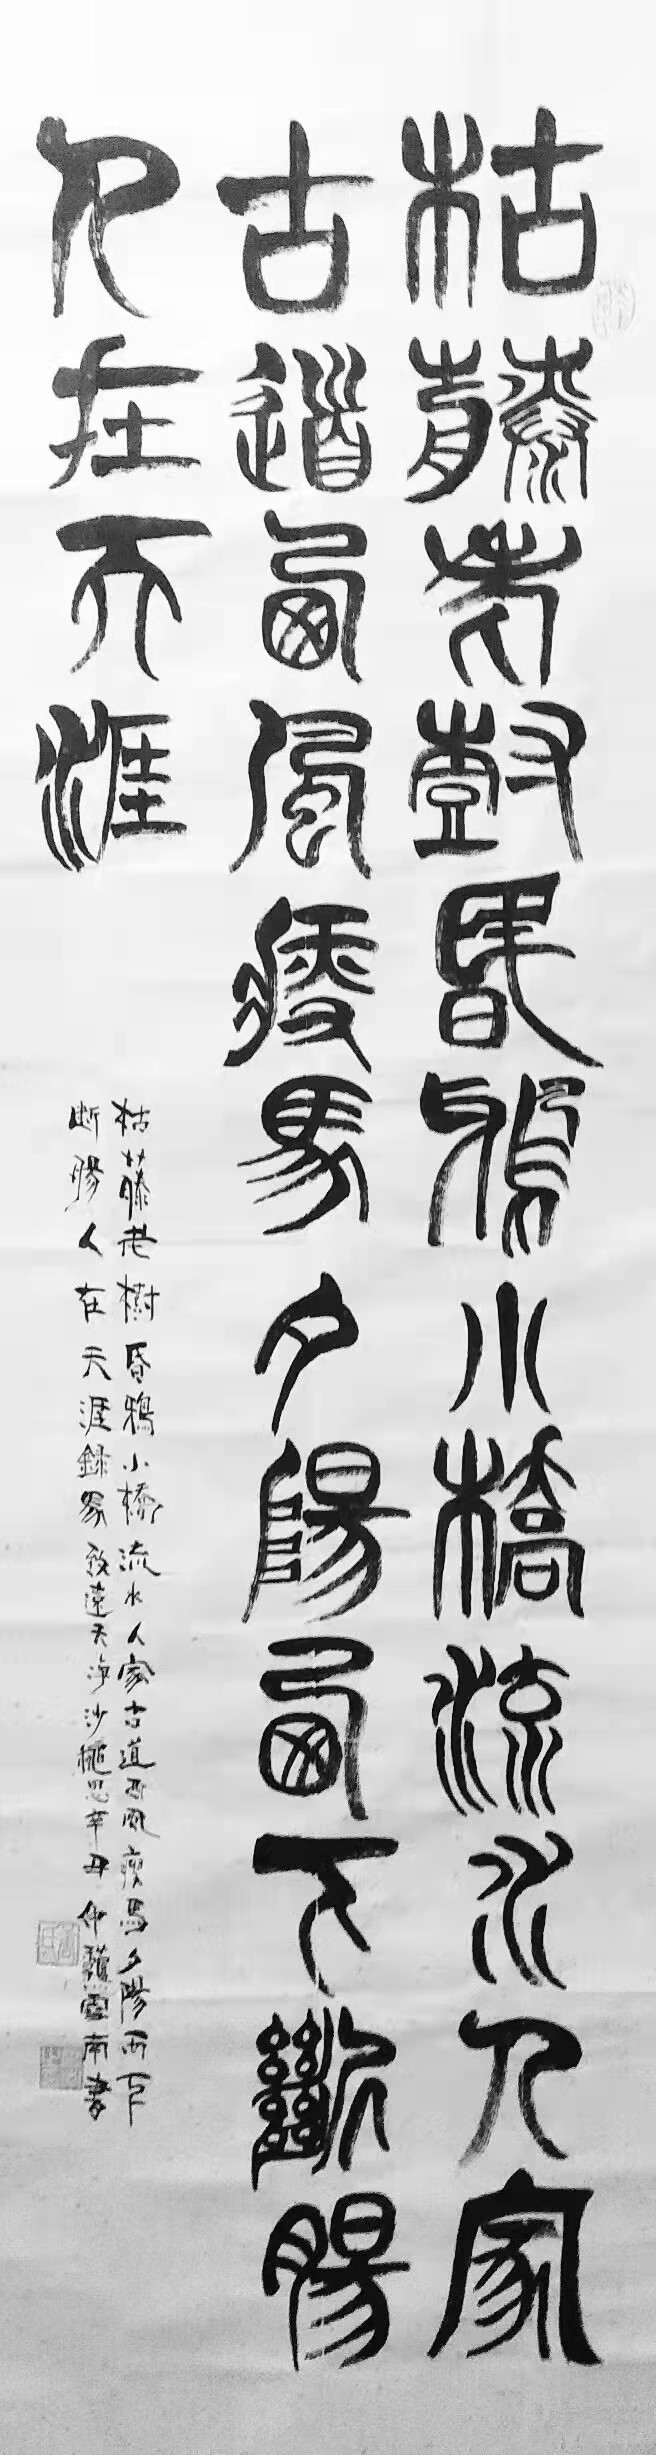 枯藤老樹昏鴉小橋流水人家
古道西風瘦馬夕陽西下斷腸
人在天涯
枯藤老樹昏鴉小橋流水人家古道西風瘦馬夕陽西下
断腸人在天涯録馬致遠天净沙秋思辛丑仲龝雲南書